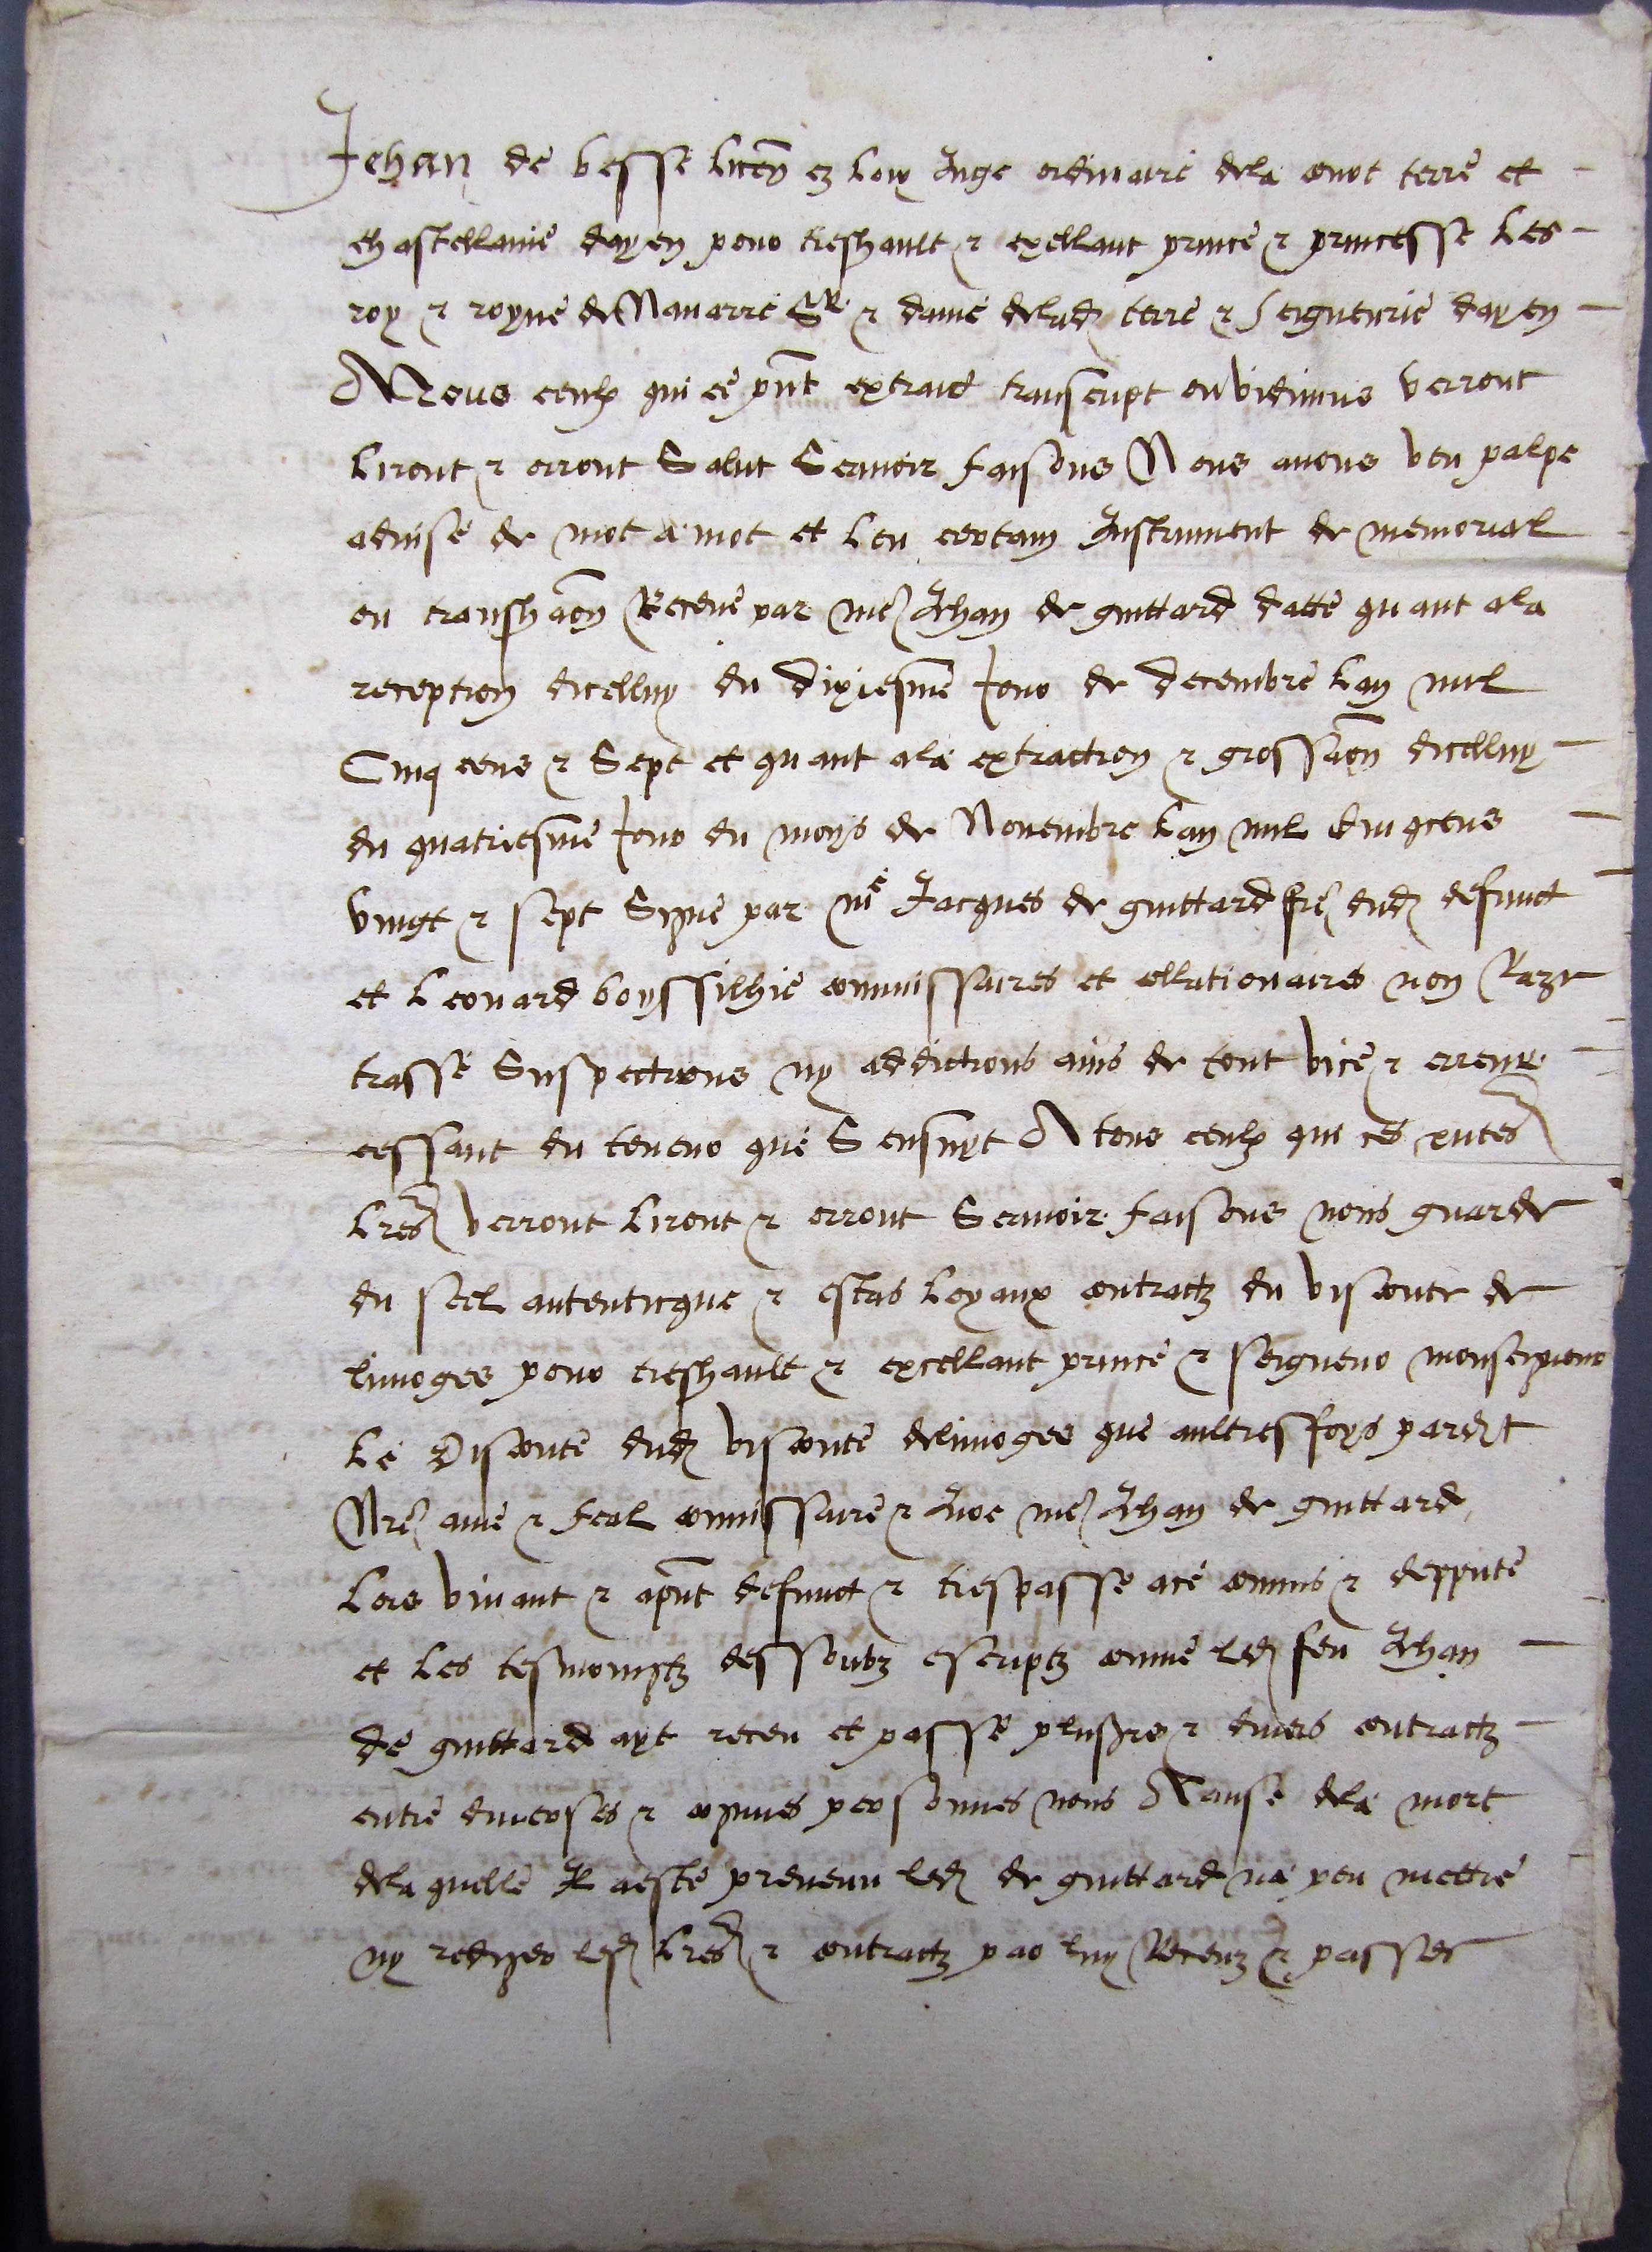 Jehan de besse licen ez loix Juge ordinaire dela court terre et
chastellanie dayen pour treshault & exellant prince & princesse Les
roy & royne de Navarre Sr & dame delad terre & Seigneurie dayen
A tous ceulx qui ce pnt extraict transcript ou vidimus verront
Liront & orront Salut Scavoir faisons Nous avons veu palpe
advise de mot a mot et Leu certain Instrument de memorial
ou transhaon Receue par me Jehan de guittard datte quant ala
reception dicelluy du dixiesme Jour de decembre Lan mil
Cinq cens & Sept et quant ala extraction & grossaon dicelluy
du quatriesme Jour du moys de Novembre Lan mil cinqcens
vingt & sept Signe par me Jacques de guittard fre dud defunct
et Leonard boyssilhie commissaires et collationaires non Raze
trasse Suspections ny addictions ains de tout vice & erreur
cessant du teneur que Sensuyt A tous ceulx qui ces pntes
Lres verront Liront & orront Scavoir faisons nous guarde
du seel autenticque & estas Loyaux contractz du visconte de
limoges pour treshault & excellant prince & seigneur monseigneur
Le Visconte dud visconte delimoges que aultresfoys pardt
Nre ame & feal commissaire & Jure me Jehan de guittard
Lors vivant & apnt defunct & trespasse ace commis & deppute
et Les tesmoingtz dessoubz escriptz comme led feu Jehan
de guittard ayt receu et passe plusrs & divers contractz
entre diverses & comunes personnes nous A cause dela mort
delaquelle Il aeste prevenu led de guittard na peu mettre
ny rediger lesd Lres & contractz par luy Receuz & passes